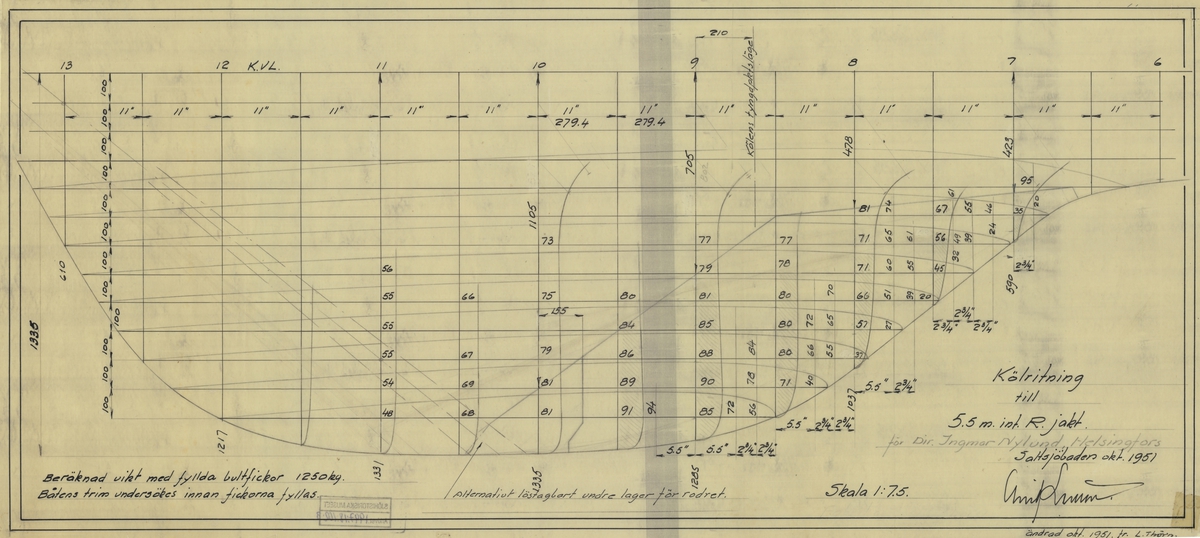 210
13 12 K.V.L. 11 10 9 8 7 6
Kölens tyngdpktsläge
11" 11" 11" 11" 11" 11" 11" 11" 11" 11" 11" 11" 11" 11"
279.4 279.4
100 100 100 100 100 100 100 100 100 100 100 100
100
705 478 423
1105
610
1335
95
81 74 67 61 55 46 35 20
73 77 77 71 65 61 56 49 39 24
56 79 78 71 60 55 45 32
2 3/4"
590
55 66 75 80 81 80 70 66 51 39 20
155
2 3/4"
55 84 85 80 72 65 57 27 2 3/4" 2 3/4"
55 67 79 86 88 84 80 66 55 37
54 69 81 89 90 78 71 40
5.5" 2 3/4"
1037
48 68 81 91 94 85 72 56
5.5" 2 3/4" 2 3/4"
1217
5.5" 5.5" 2 3/4" 2 3/4"
1331 1335 1285
Kölritning
till
5.5 m. int. R. jakt.
för Dir. Ingmar Nylund, Helsingfors
Saltsjöbaden okt. 1951
Beräknad vikt med fyllda bultfickor 1250 kg.
Båtens trim undersökes innan fickorna fyllas.
Alternativt löstagbart undre lager för rodret.
Skala 1:7.5.
Ändrad okt. 1951. fr. L. Thörn.